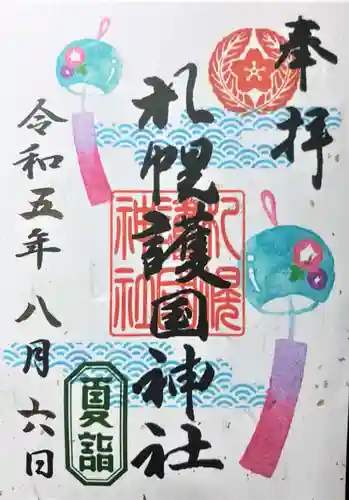 奉拝
札幌護國神社
札幌
護国
神社
令和五年八月六日
夏詣